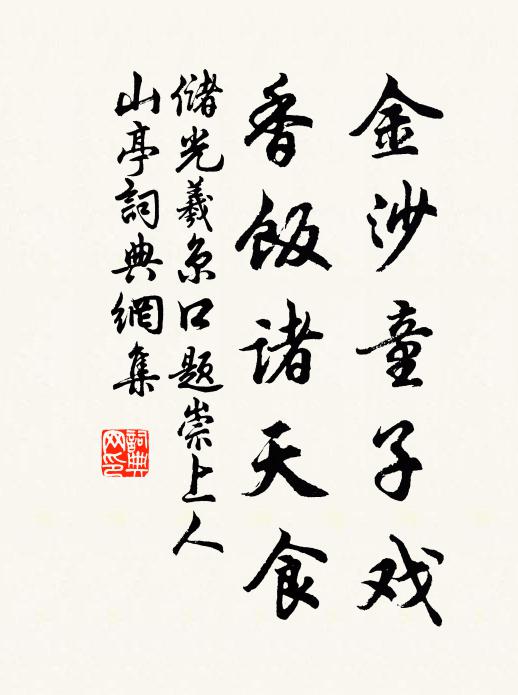 金沙童子戏
香飯诸天食
儲光羲京口題崇上人
山亭詞典網集
詞典网印